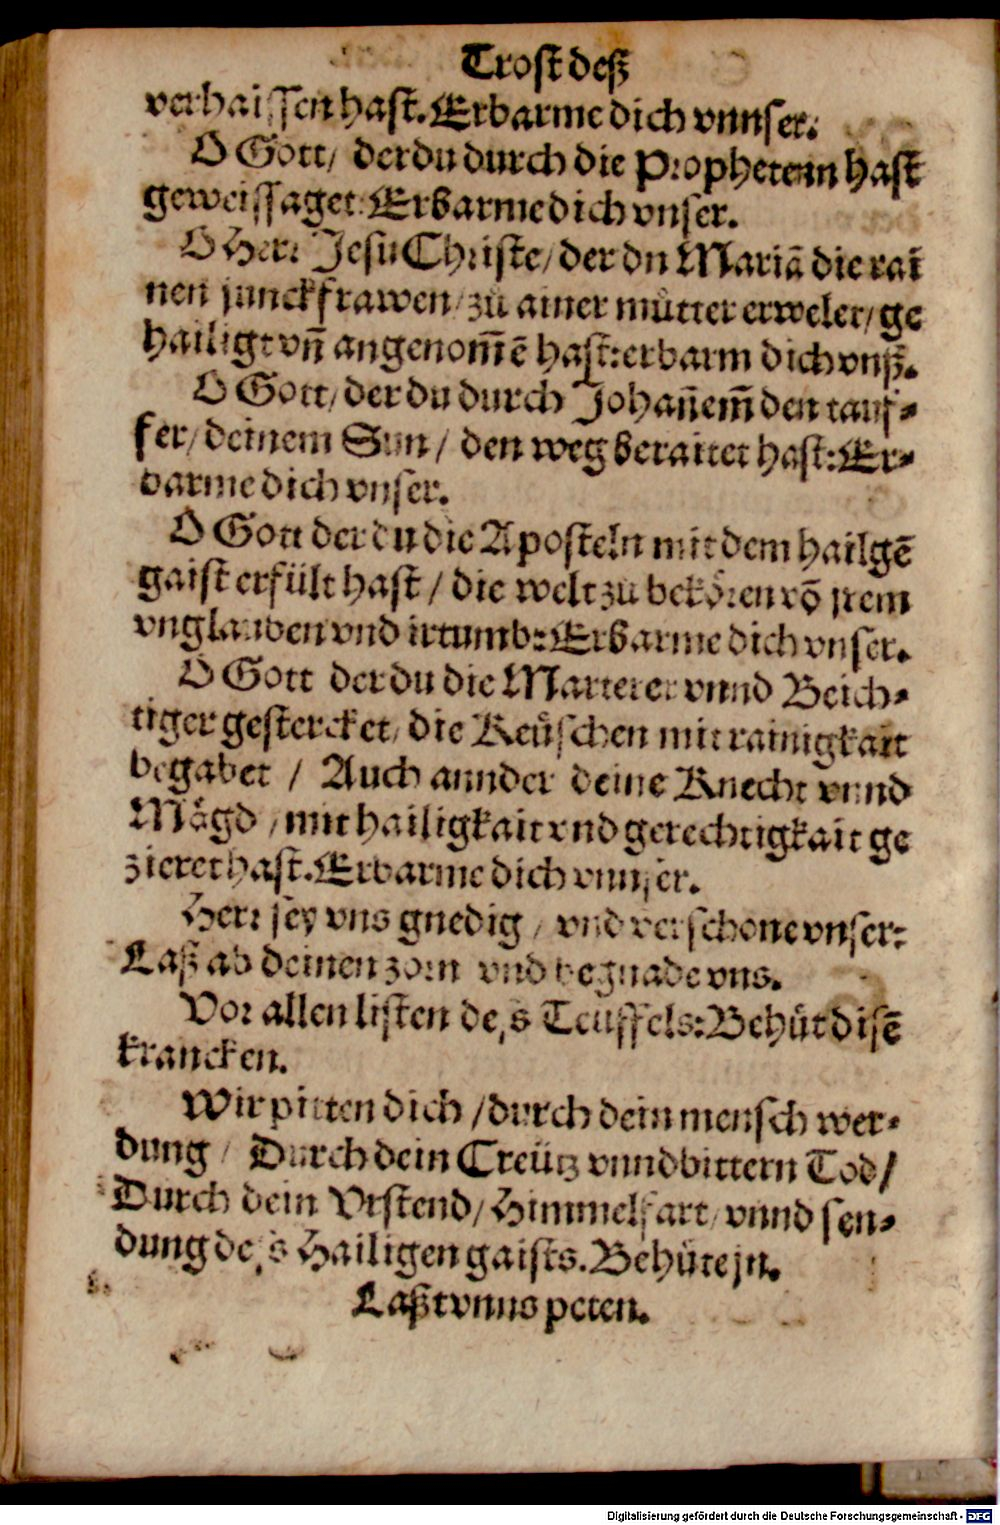 Trost deß
verhaissen hast. Erbarme dich vnnser.
O Gott/ der du durch die Prophetenn hast
geweissaget: Erbarme dich vnser.
O Herr Jesu Christe/ der du Mariã die rai
nen junckfrawen/ zů ainer můtter erwelet/ ge
hailigt vñ angenom̃ẽ hast: erbarm dich vnß.
O Gott/ der du durch Johañem̃ den tauf⸗
fer/ deinem Sun/ den weg beraitet hast: Er⸗
barme dich vnser.
O Gott der du die Aposteln mit dem hailgẽ
gaist erfült hast/ die welt zů bekören võ jrem
vnglauben vnd irtumb: Erbarme dich vnser.
O Gott der du die Marterer vnnd Beich⸗
tiger gestercket/ die Keüschen mit rainigkait
begabet/ Auch annder deine Knecht vnnd
Mägd/ mit hailigkait vnd gerechtigkait ge
zieret hast. Erbarme dich vnnser.
Herr sey vns gnedig/ vnd verschone vnser:
Laß ab deinen zorn vnd begnade vns.
Vor allen listen des Teuffels: Behüt disẽ
krancken.
Wir pitten dich/ durch dein mensch wer⸗
dung/ Durch dein Creütz vnnd bittern Tod/
Durch dein Vrstend/ Himmelfart/ vnnd sen⸗
dung des Hailigen gaists. Behüte jn.
Laßt vnns peten.
Digitalisierung gefördert durch die Deutsche Forschungsgemeinschaft - DFG